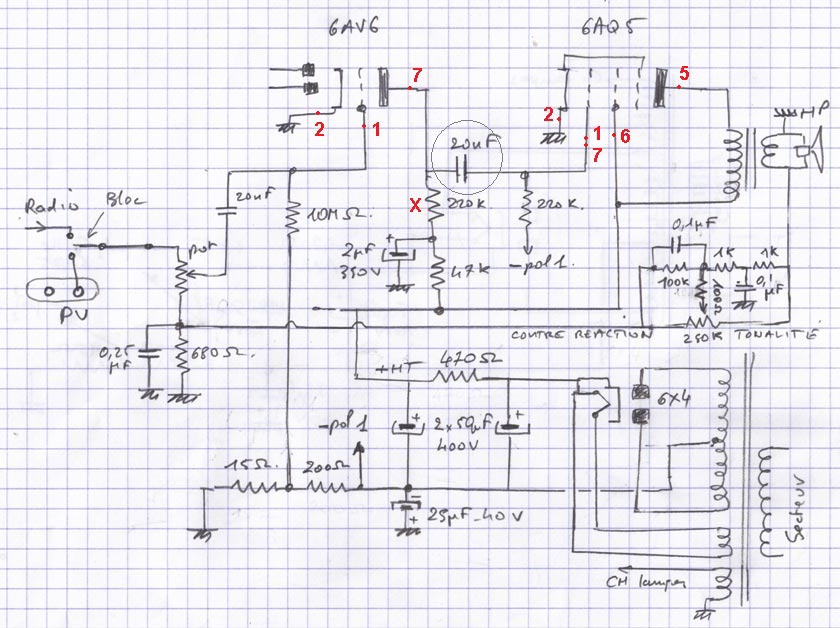 6AV6
6AQ5
7
5
2
1
2
1
6
7
HP
20nF
Radio
Bloc
20nF
10MΩ.
X
220K
220K.
pot
0,1µF
2µF
350V
-pol 1.
47K
1K
1K
100K
0,1
µF
PU
CONTRE REACTION
250K
TONALITIE
0,25
µF
680Ω.
+HT
470Ω
6X4
-pol 1
2x50µF
400V
15Ω.
200Ω
Secteur
25µF-40V
CH lampes